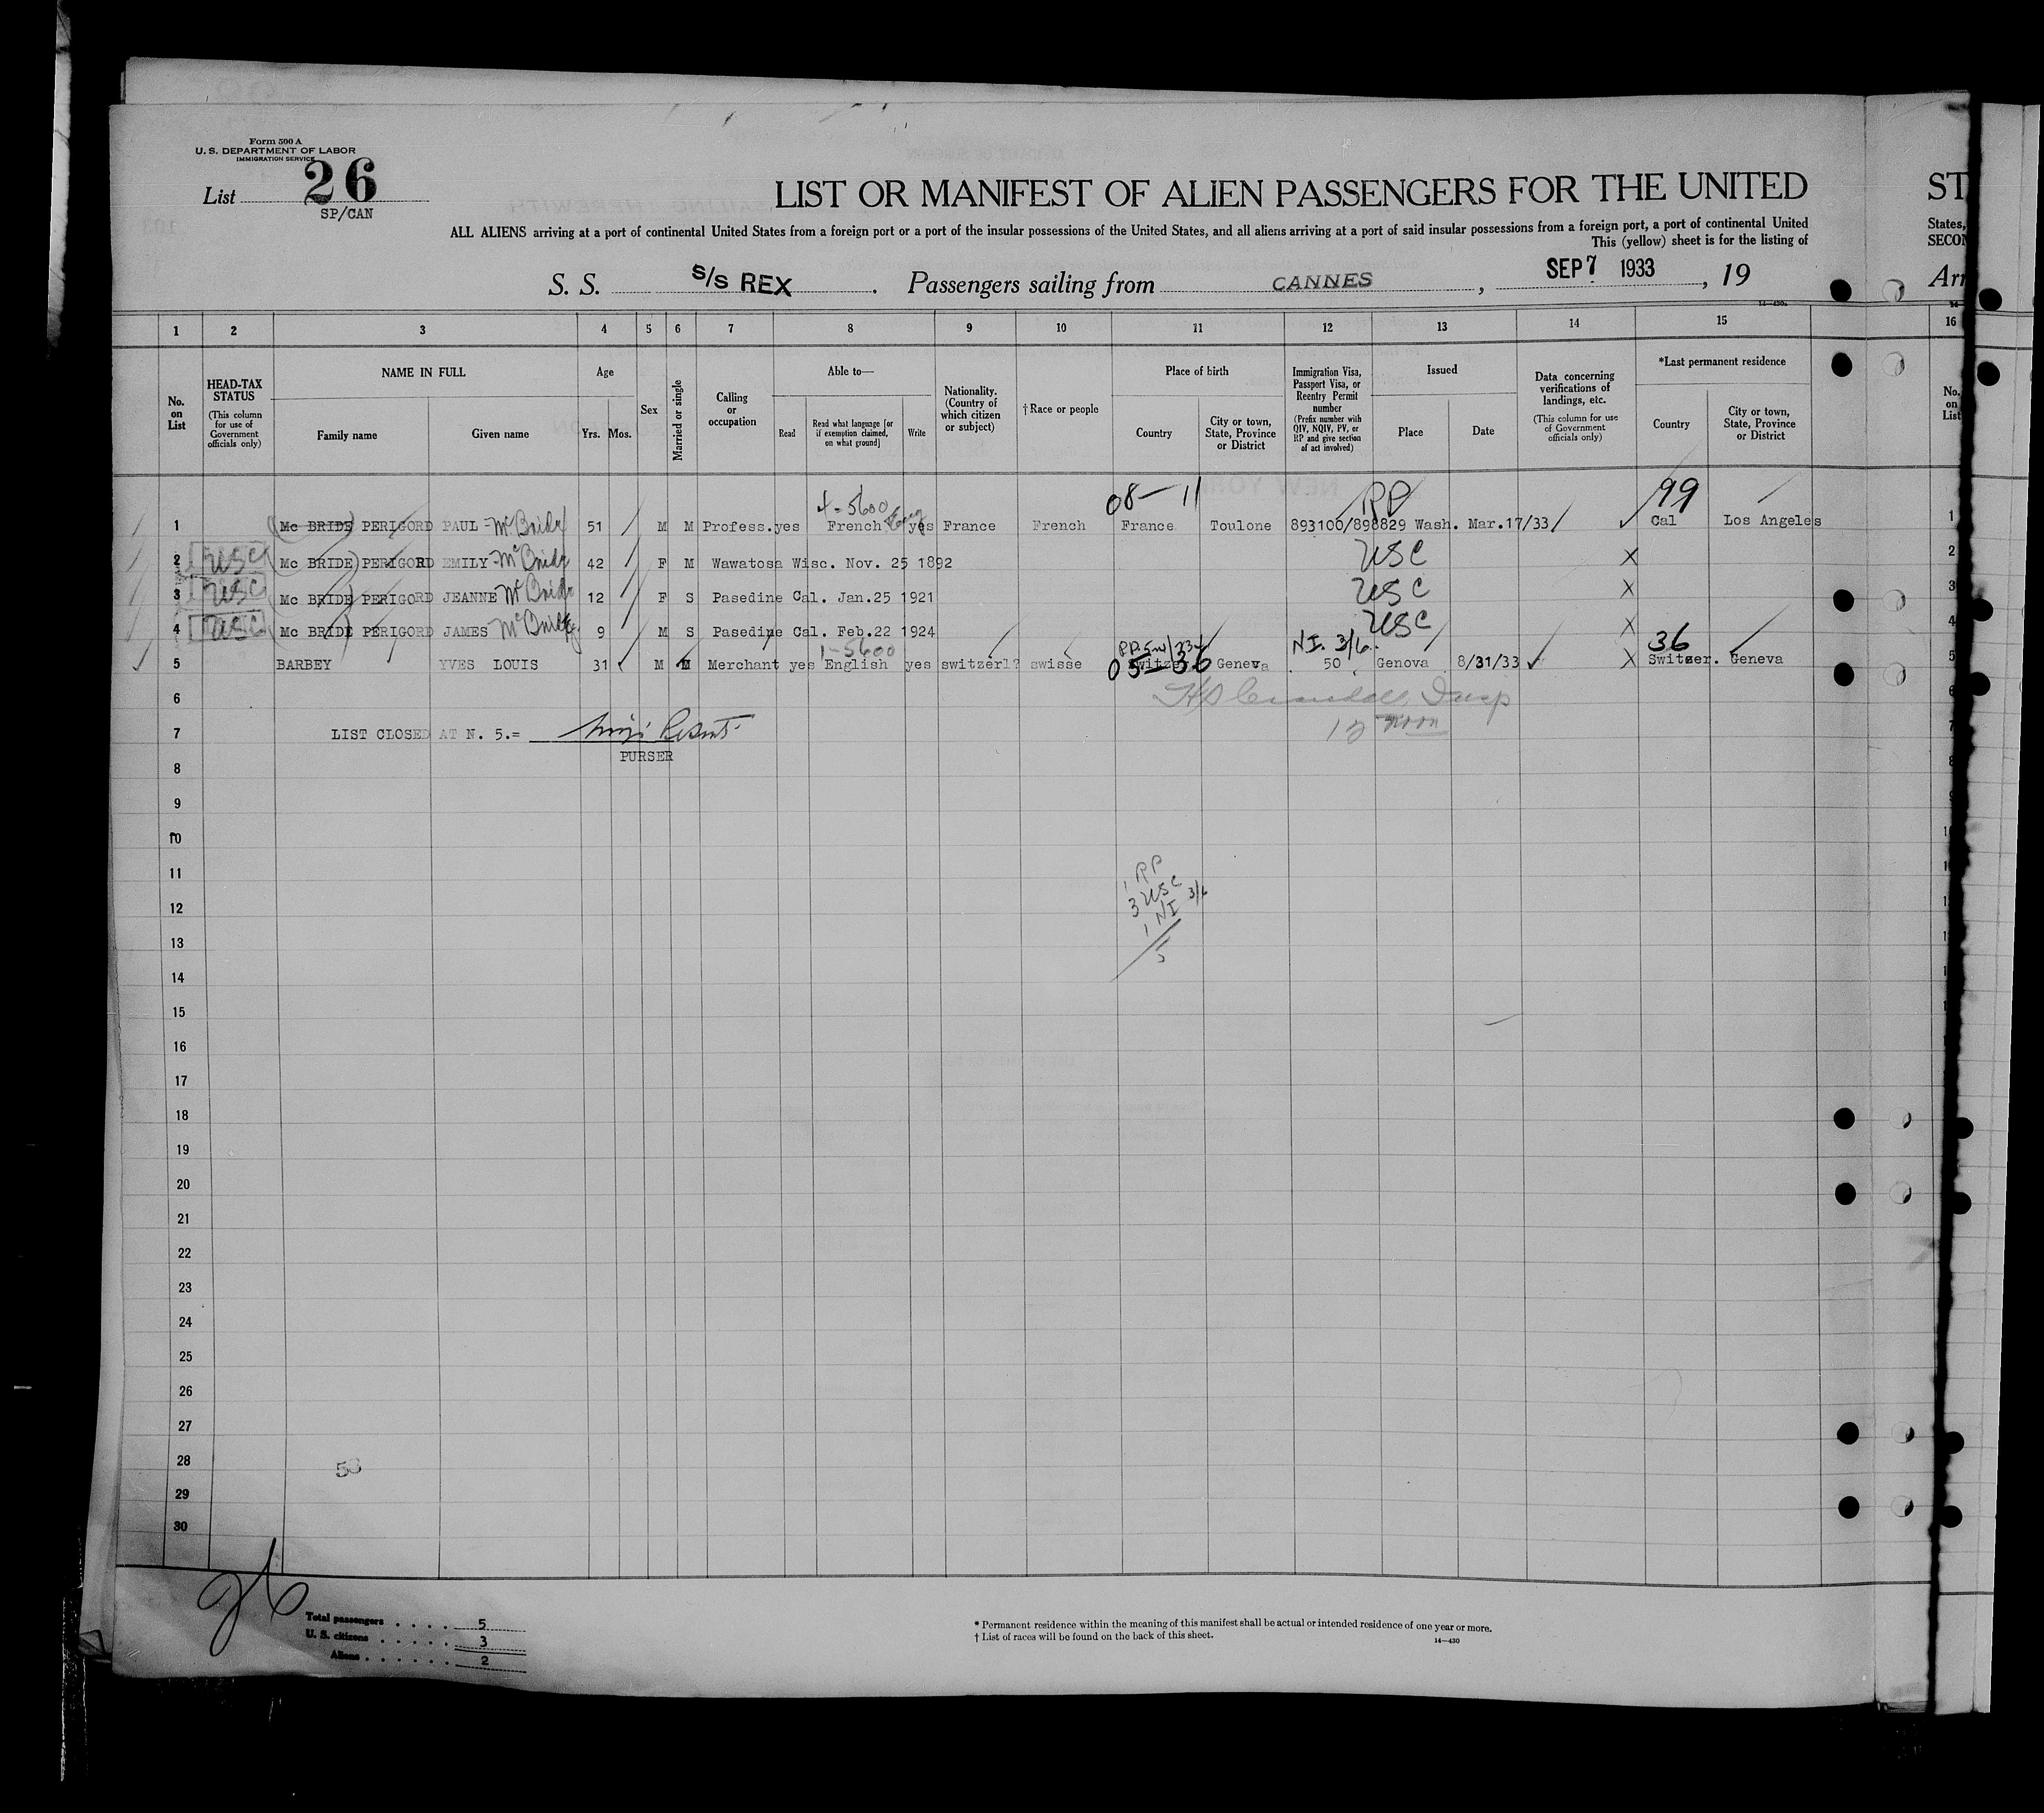 Form 500 A
U. S. DEPARTMENT OF LABOR
IMMIGRATION SERVICE
List 26
SP/CAN
LIST OR MANIFEST OF ALIEN PASSENGERS FOR THE UNITED ST
ALL ALIENS arriving at a port of continental United States from a foreign port or a port of the insular possessions of the United States, and all aliens arriving at a port of said insular possessions from a foreign port, a port of continental United States,
This (yellow) sheet is for the listing of SECON
S. S. S/S REX . Passengers sailing from CANNES , SEP 7 1933 , 19 Arr
1 2 3 4 5 6 7 8 9 10 11 12 13 14 15 16
No. on List
HEAD-TAX STATUS (This column for use of Government officials only)
NAME IN FULL
Family name Given name
Age
Yrs. Mos.
Sex
Married or single
Calling or occupation
Able to—
Read Read what language [or if exemption claimed, on what ground] Write
Nationality. (Country of which citizen or subject)
†Race or people
Place of birth
Country City or town, State, Province or District
Immigration Visa, Passport Visa, or Reentry Permit number (Prefix number with QIV, NQIV, PV, or RP and give section of act involved)
Issued
Place Date
Data concerning verifications of landings, etc. (This column for use of Government officials only)
*Last permanent residence
Country City or town, State, Province or District
No. on List
08—11 RP 99
1 (Mc BRIDE) PERIGORD PAUL - McBride 51 M M Profess. yes French yes France French France Toulone 893100/898829 Wash. Mar.17/33 Cal Los Angeles 1
2 USC Mc BRIDE) PERIGORD EMILY - McBride 42 F M Wawatosa Wisc. Nov. 25 1892 USC X 2
3 USC Mc BRIDE) PERIGORD JEANNE McBride 12 F S Pasedine Cal. Jan.25 1921 USC X 3
4 USC Mc BRIDE PERIGORD JAMES McBride 9 M S Pasedine Cal. Feb.22 1924 USC X 4
1-5600 N.I. 3/6. 36
5 BARBEY YVES LOUIS 31 M M Merchant yes English yes switzerl? swisse 05—36 Geneva 50 Genova 8/31/33 X Switzer. Geneva 5
6 6
12 noon
7 LIST CLOSED AT N. 5.= 7
PURSER
8 8
9
10
11
1 RP
12
3 USC
1 NI 3/6
13
5
14
15
16
17
18
19
20
21
22
23
24
25
26
27
28
29
30
26
Total passengers 5
U. S. citizens 3
Aliens 2
* Permanent residence within the meaning of this manifest shall be actual or intended residence of one year or more.
† List of races will be found on the back of this sheet.
14—430